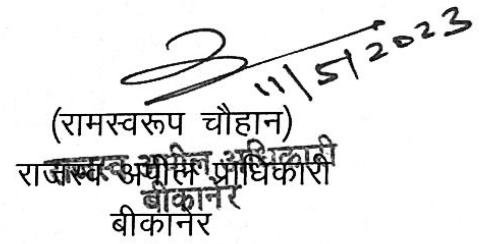 11/5/2023
(रामस्वरूप चौहान)
राजस्व अपील अधिकारी
राजस्व अपील प्राधिकारी
बीकानेर
बीकानेर